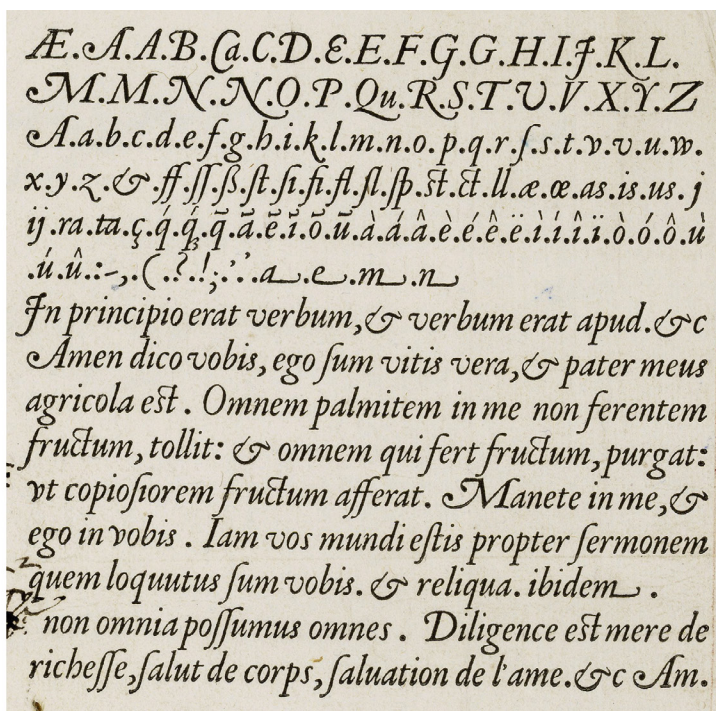 Æ.A.A.B.Ca.C.D.E.E.F.G.G.H.I.J.K.L.
M.M.N.N.O.P.Qu.R.S.T.U.V.X.Y.Z
A.a.b.c.d.e.f.g.h.i.k.l.m.n.o.p.q.r.ſ.s.t.v.v.u.w.
x.y.z.&.ff.ſſ.ß.ſt.ſi.fi.fl.ſl.ſp.st.ct.ll.æ.œ.as.is.us.j
ij.ra.ta.ç.q́.q́.q̃.ã.ẽ.ĩ.õ.ũ.à.á.â.è.é.ê.ë.ì.í.î.ï.ò.ó.ô.ù
.ú.û.:-,.(.?.!;.'.'.a.e.m.n
In principio erat verbum,& verbum erat apud.&c
Amen dico vobis, ego ſum vitis vera,& pater meus
agricola est. Omnem palmitem in me non ferentem
fructum, tollit: & omnem qui fert fructum, purgat:
vt copioſiorem fructum afferat. Manete in me,&
ego in vobis. Iam vos mundi eſtis propter ſermonem
quem loquutus ſum vobis. & reliqua. ibidem.
non omnia poſſumus omnes. Diligence est mere de
richeſſe, ſalut de corps, ſaluation de l'ame.&c Am.